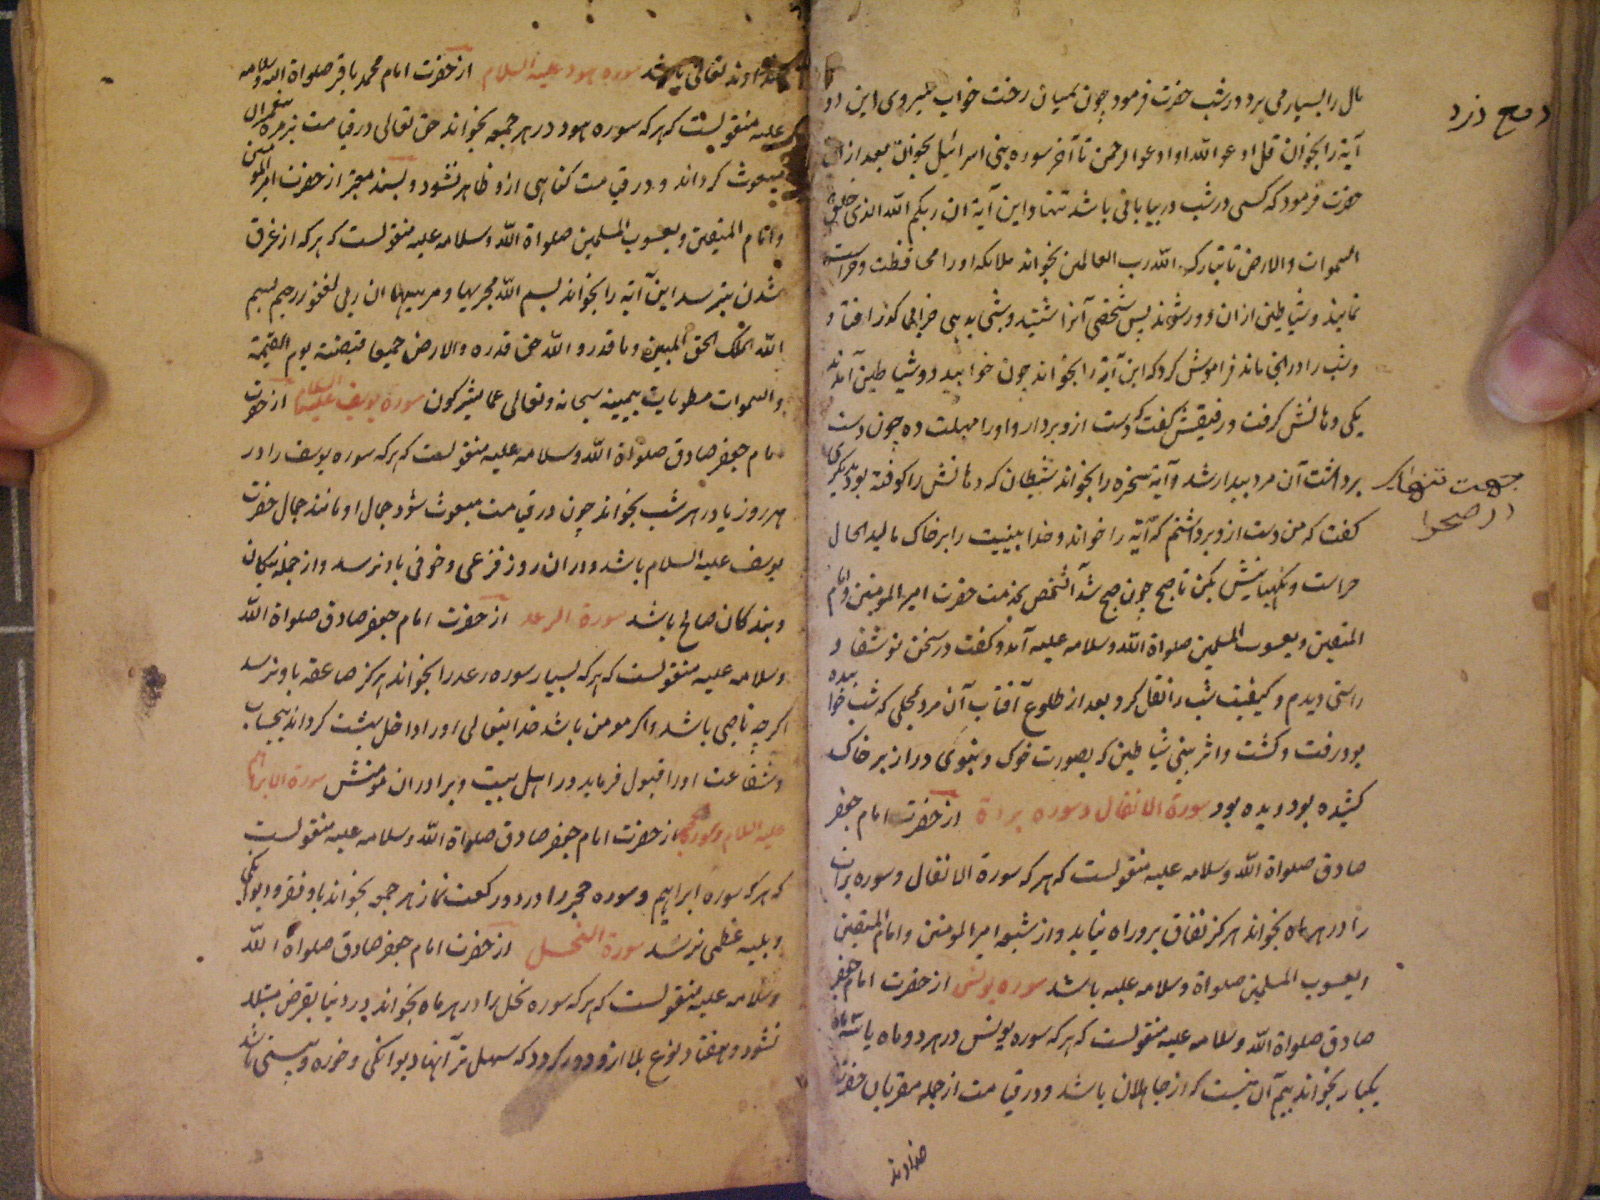 مال را بسیار می برد در شب حضرت فرمود چون بمیان رخت خواب میروی این دو
دفع دزد
آیة را بخوان قل ادعو الله او ادعو الرحمن تا آخر سوره بنی اسرائیل بخوان بعد از آن
حضرت فرمود که کسی در شب در بیابانی باشد تنها و این آیة ان ربکم الله الذی خلق
السموات والارض تا تبارک الله رب العالمین بخواند ملائکه او را محافظت و حراست
نمایند و شیاطین از ان دور شوند پس شخصی آنرا شنید و شبی بدیهی خرابی گذر افتاد و
و شب را در انجا ماند فراموش کرد که این آیة را بخواند چون خوابید دو شیاطین آمدند
یکی دهانش گرفت و رفیقش گفت که دست ازو بردار و او را مهلت ده چون دست
برداشت آن مرد بیدار شد و آیة سخره را بخواند شیطان که دهانش را گرفته بود بدیگری
جهت تنها
در صحرا
گفت که من دست ازو برداشتم که آیة را خواند و خدا بینیت را بر خاک مالید الحال
حراست و نگهبانیش بکن تا صبح چون صبح شد آنشخص بخدمت حضرت امیر المومنین و امام
المتقین و یعسوب المسلمین صلواة الله و سلامه علیه آمد و گفت در سخن تو شفا و
راستی دیدم و کیفیت شب را نقل کرد بعد از طلوع آفتاب آن مرد بمحلی که شب خوابیده
بود رفت و گشت و اثر بینی شیاطین که بصورت خوک و بنوی دراز بر خاک
کشیده بود دیده بود سورة الانفال و سوره براة از حضرت امام جعفر
صادق صلواة الله و سلامه علیه منقولست که هر که سورة الانفال و سوره برات
را در هر ماه بخواند هرگز نفاق برو راه نیابد و از شیعه امیر المومنین و امام المتقین
و یعسوب المسلمین صلواة و سلامه علیه باشد سوره یونس از حضرت امام جعفر
صادق صلواة الله و سلامه علیه منقولست که هر که سوره یونس در هر دو ماه یا سه ماه
یکبار بخواند بیم آن نیست که از جاهلان باشد و در قیامت از جمله مقربان حضرت
خداوند
خداوند تعالی باشد سوره هود علیه السلام از حضرت امام محمد باقر صلواة الله و سلامه
علیه منقولست که هر که سوره هود در هر جمعه بخواند حق تعالی در قیامت بزمره پیغمبران
مبعوث گرداند و در قیامت گناهی ازو ظاهر نشود و بسند معتبر از حضرت امیر المومنین
و امام المتقین و یعسوب المسلمین صلواة الله و سلامه علیه منقولست که هر که از غرق
شدن بترسد این آیة را بخواند بسم الله مجریها و مرسیها ان ربی لغفور رحیم بسم
الله الملک الحق المبین و ما قدرو الله حق قدره والارض جمیعا قبضته یوم القیمة
والسموات مطویات بیمینه سبحانه و تعالی عما یشرکون سورة یوسف علیه السلام از حضرت
امام جعفر صادق صلواة الله و سلامه علیه منقولست که هر که سوره یوسف را در
هر روز یا در هر شب بخواند چون در قیامت مبعوث شود جمال او مانند جمال حضرت
یوسف علیه السلام باشد و در ان روز فزعی و خوفی باو نرسد و از جمله نیکان
و بندکان صالح باشد سورة الرعد از حضرت امام جعفر صادق صلواة الله
و سلامه علیه منقولست که هر که بسیار سوره رعد را بخواند هرگز صاعقه باو نرسد
اگر چه ناصبی باشد و اگر مومن باشد خدایتعالی او را داخل بهشت گرداند بیحساب
و شفاعت او را قبول فرماید در اهل بیت و برادران مومنش سورة ابراهیم
علیه السلام و سوره حجر از حضرت امام جعفر صادق صلواة الله و سلامه علیه منقولست
که هر که سوره ابراهیم و سوره حجر را در دو رکعت نماز هر جمعه بخواند باو فقر و دیوانگی
و بلیه عظمی نرسد سورة النحل از حضرت امام جعفر صادق صلواة الله
و سلامه علیه منقولست که هر که سوره نحل را در هر ماه بخواند در دنیا بقرض مبتلا
نشود و هفتاد نوع بلا ازو دور گردد که سهل تر آنها دیوانگی و خوره و پیسی باشد